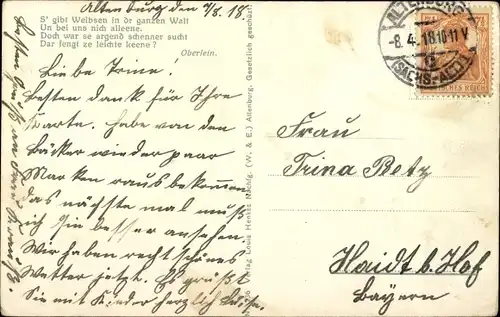 Altenburg den 7/8. 18.
S' gibt Weibsen in dr ganzen Walt
Un bei uns nich alleene.
Doch war se argend schenner sucht
Dar fengt ze leichte keene?
Oberlein.
Liebe Trine!
Besten Dank für Ihre
Karte. habe von den
Bäcker wieder paar
Marken rausbekommen
das nächste mal muß
ich sie besser ansehen.
Wir haben recht schönes
Wetter jetzt. Es grüßt
Sie mit Kinder herzlich
Besten Gruß an
Verlag Louis Henkes Nachfg. (W. & E.) Altenburg. Gesetzlich geschützt
ALTENBURG
-8.4.18 10-11 V
(SACHS.-ALT.)
DEUTSCHES REICH
7½
Frau
Trina Betz
Haidt b. Hof
Bayern